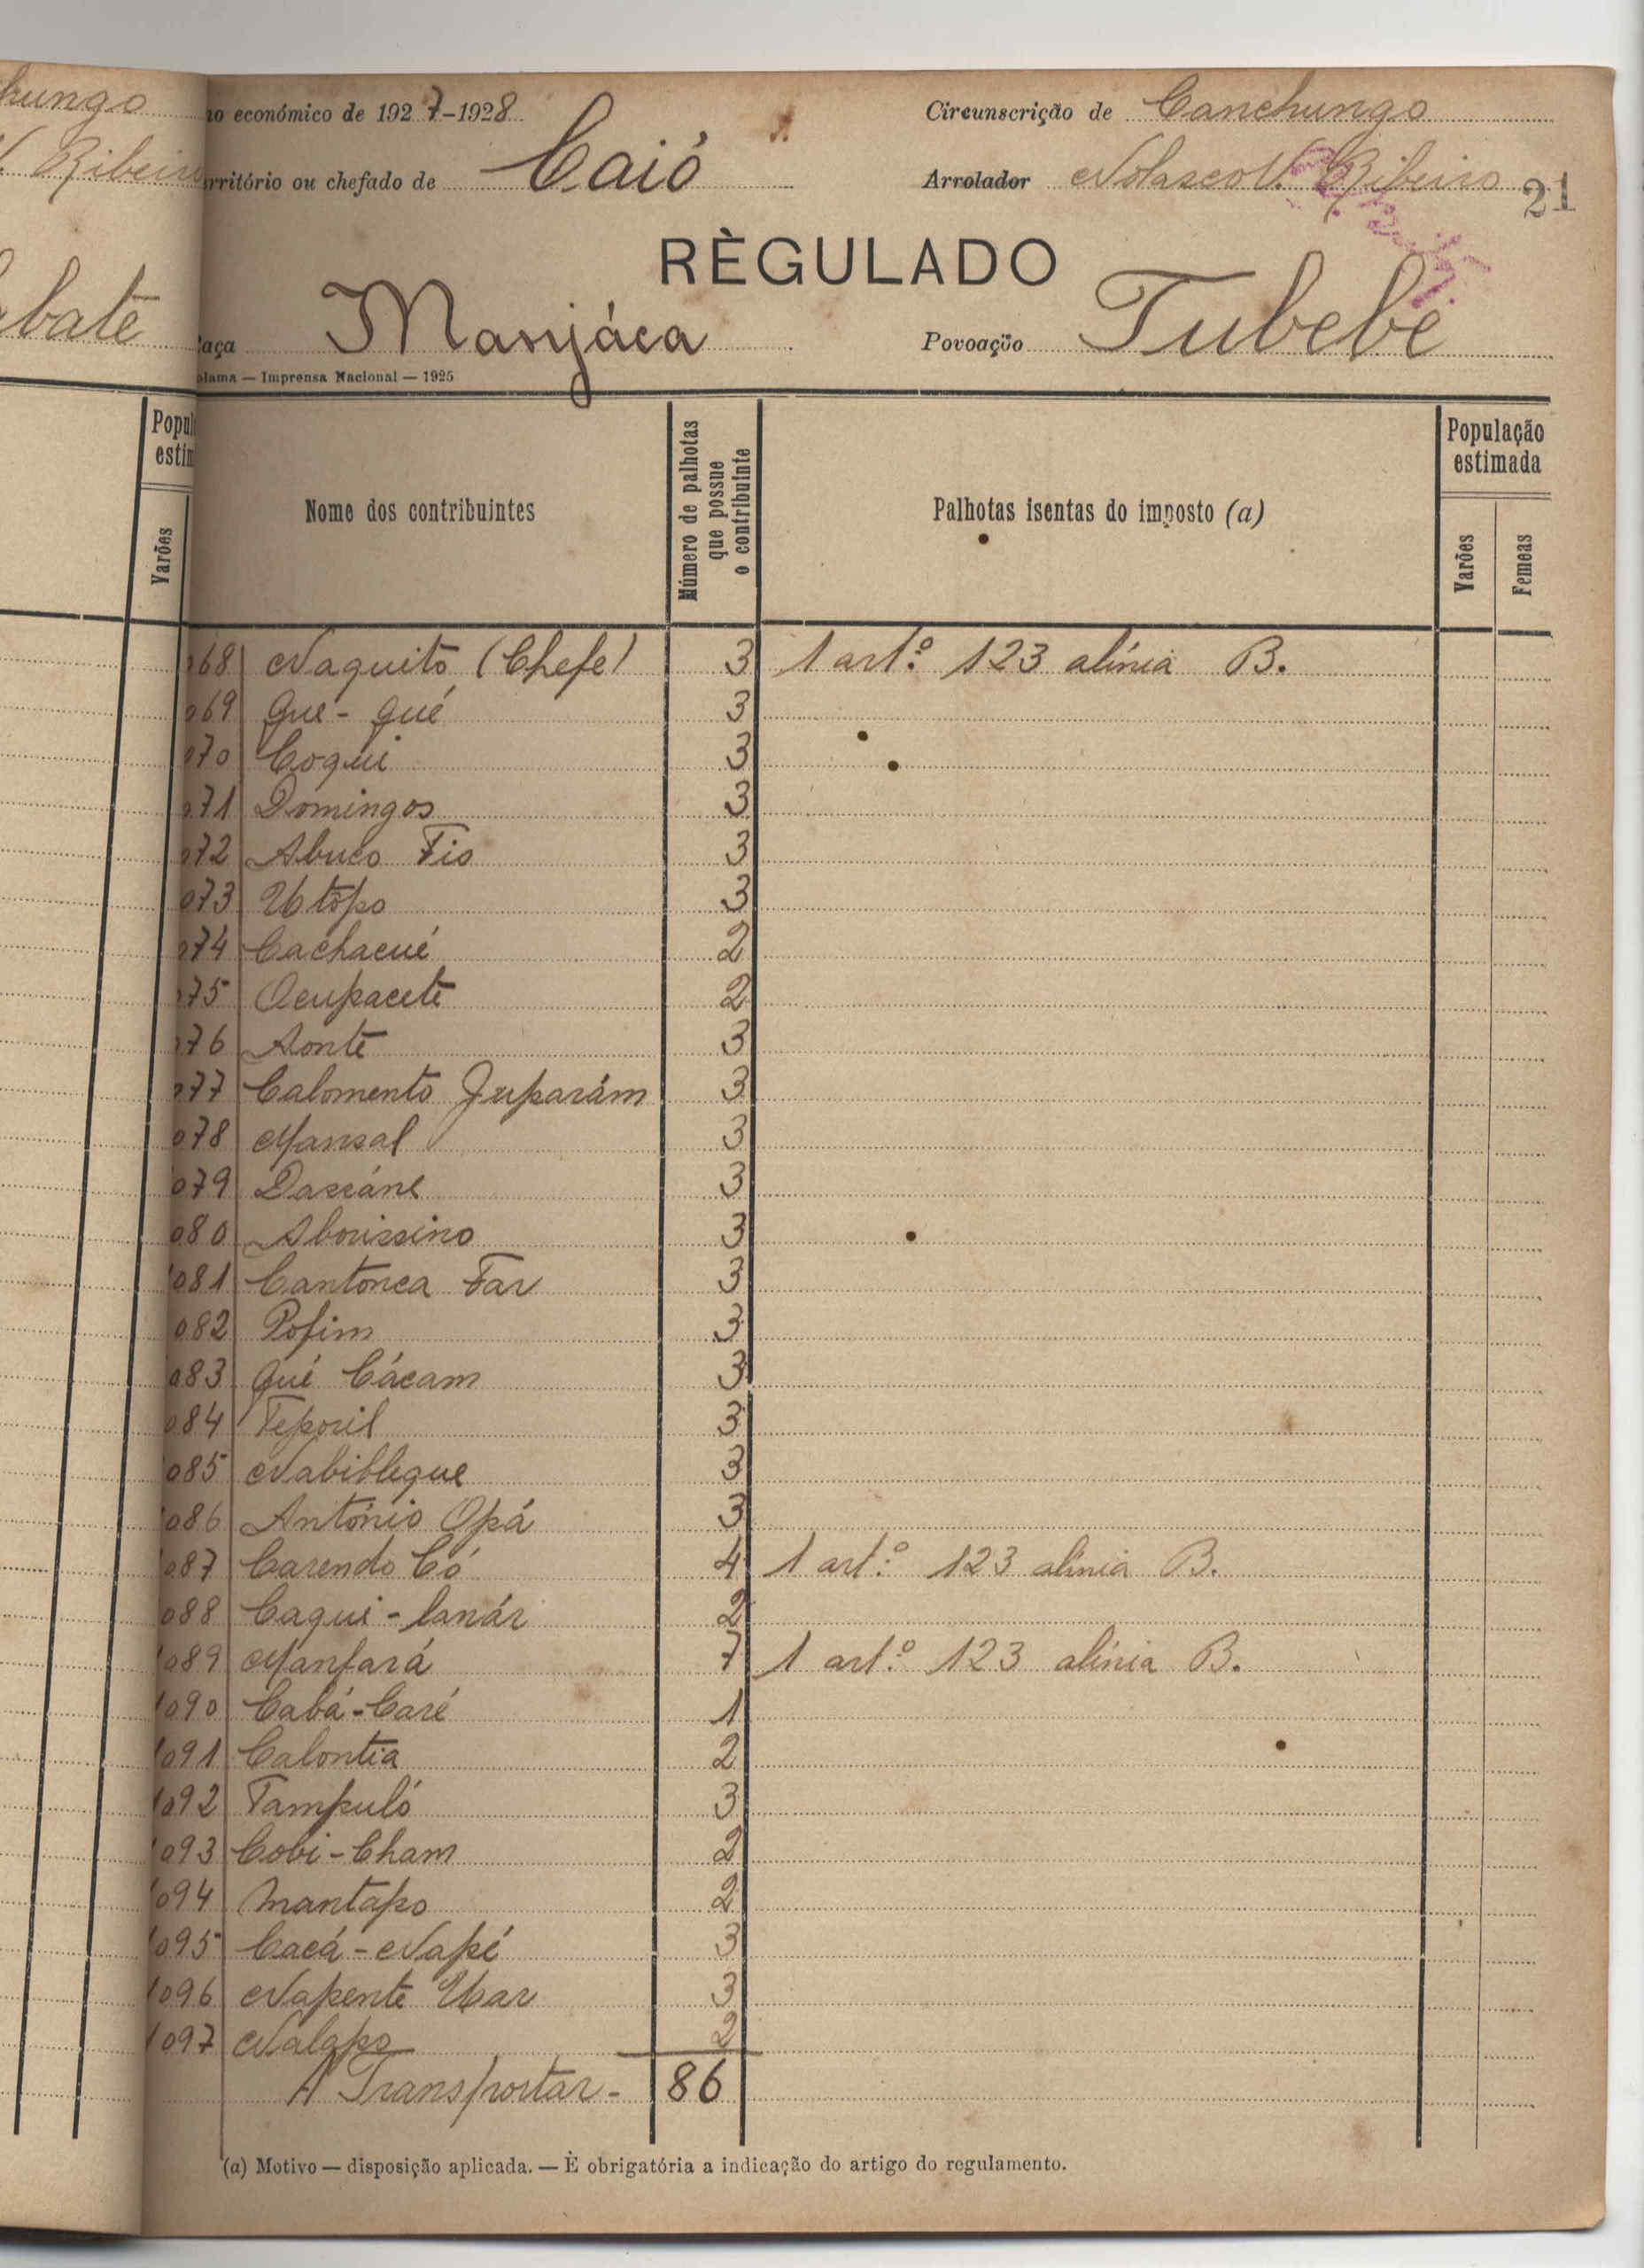 hungo
Ribeiro
bate
Varões
no económico de 1927-1928
Circunscrição de Canchungo
rritório ou chefado de Caió
Arrolador Nolasco V. Ribeiro 21
RÈGULADO
aça Manjáca
Povoação Tubebé
olama — Imprensa Nacional — 1925
Nome dos contribuintes
Número de palhotas que possue o contribuinte
Palhotas isentas do imposto (a)
População estimada
Varões
Femeas
068 Naquito (Chefe) 3 1 art.º 123 alínia B.
069 Gué-gué 3
070 Coqui 3
071 Domingos 3
072 Abuco Fio 3
073 Utopo 3
074 Cachacué 2
075 Ocupacete 2
076 Aonte 3
077 Calomento Juparám 3
078 Mansal 3
079 Dascáne 3
080 Abouissino 3
1081 Cantonca Far 3
082 Pofim 3
083 Qué Cácam 3
084 Teporil 3
085 Nabiblique 3
1086 António Opá 3
087 Carendo Có 4 1 art.º 123 alínia B.
088 Caqui-lanár 2
1089 Manfará 7 1 art.º 123 alínia B.
1090 Cabá-Caré 1
1091 Calontia 2
1092 Tampuló 3
1093 Cobi-Cham 2
1094 Mantapo 2
1095 Cacá-Napé 3
1096 Napente Ubar 3
1097 Nalapo 2
A Transportar - 86
(a) Motivo — disposição aplicada. — È obrigatória a indicação do artigo do regulamento.